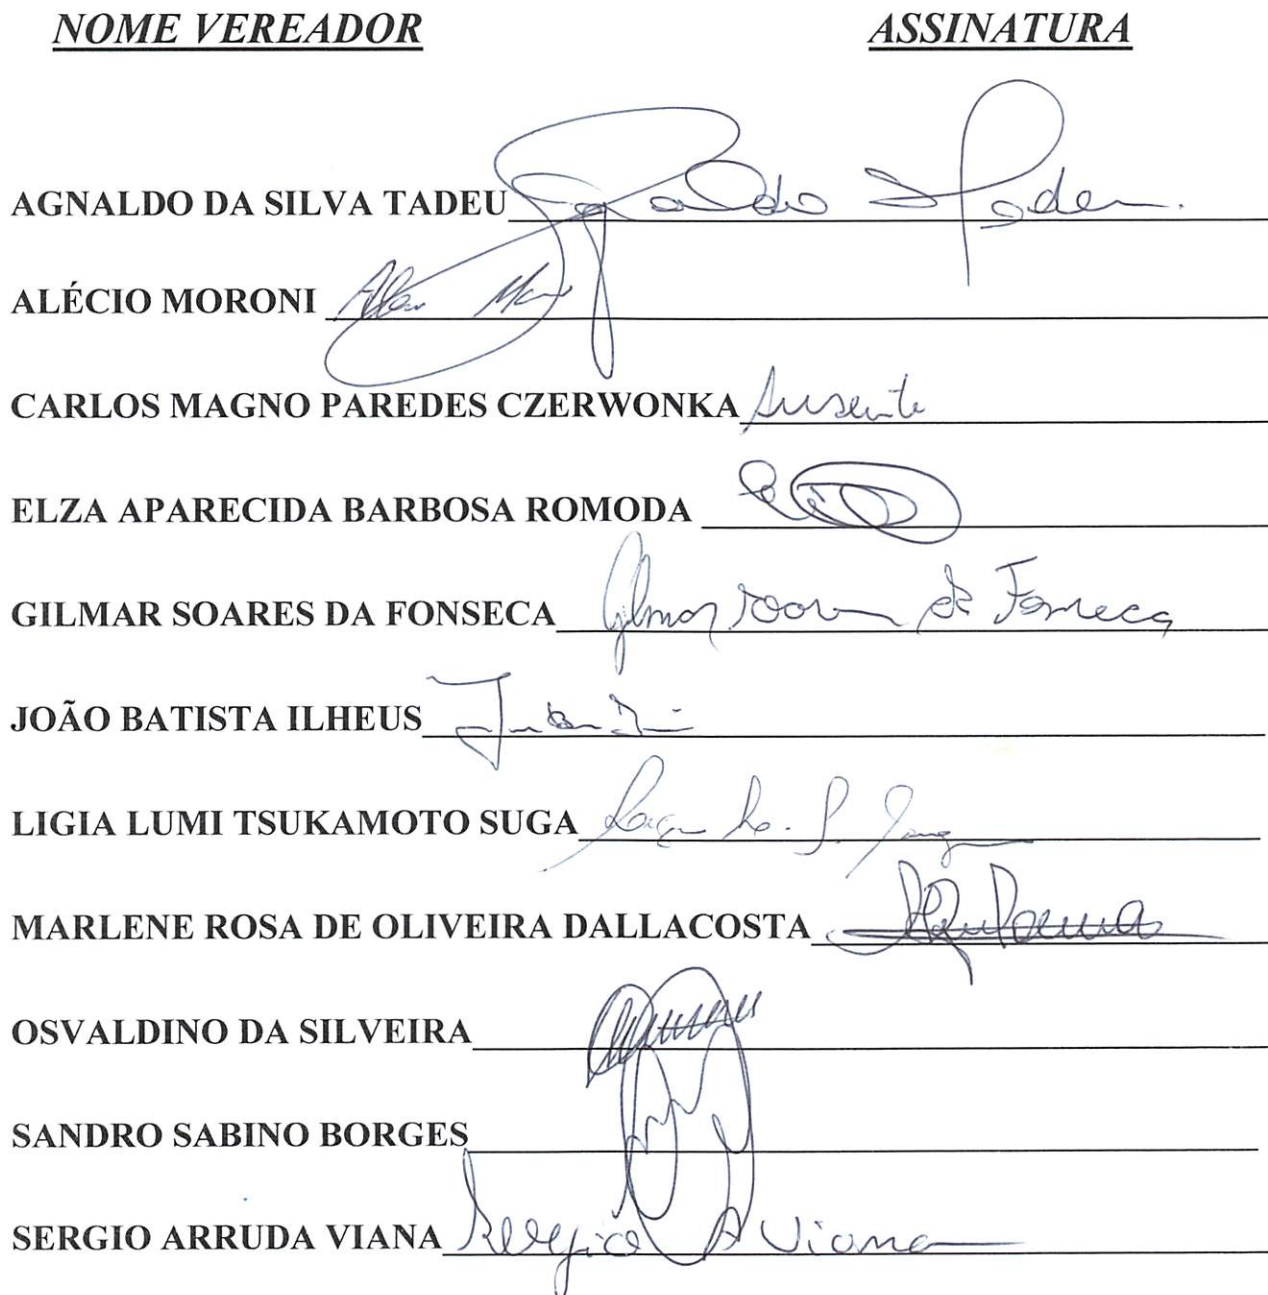 NOME VEREADOR ASSINATURA
AGNALDO DA SILVA TADEU
ALÉCIO MORONI
CARLOS MAGNO PAREDES CZERWONKA Ausente
ELZA APARECIDA BARBOSA ROMODA
GILMAR SOARES DA FONSECA Gilmar Soares da Fonseca
JOÃO BATISTA ILHEUS
LIGIA LUMI TSUKAMOTO SUGA
MARLENE ROSA DE OLIVEIRA DALLACOSTA
OSVALDINO DA SILVEIRA
SANDRO SABINO BORGES
SERGIO ARRUDA VIANA Sergio A Viana